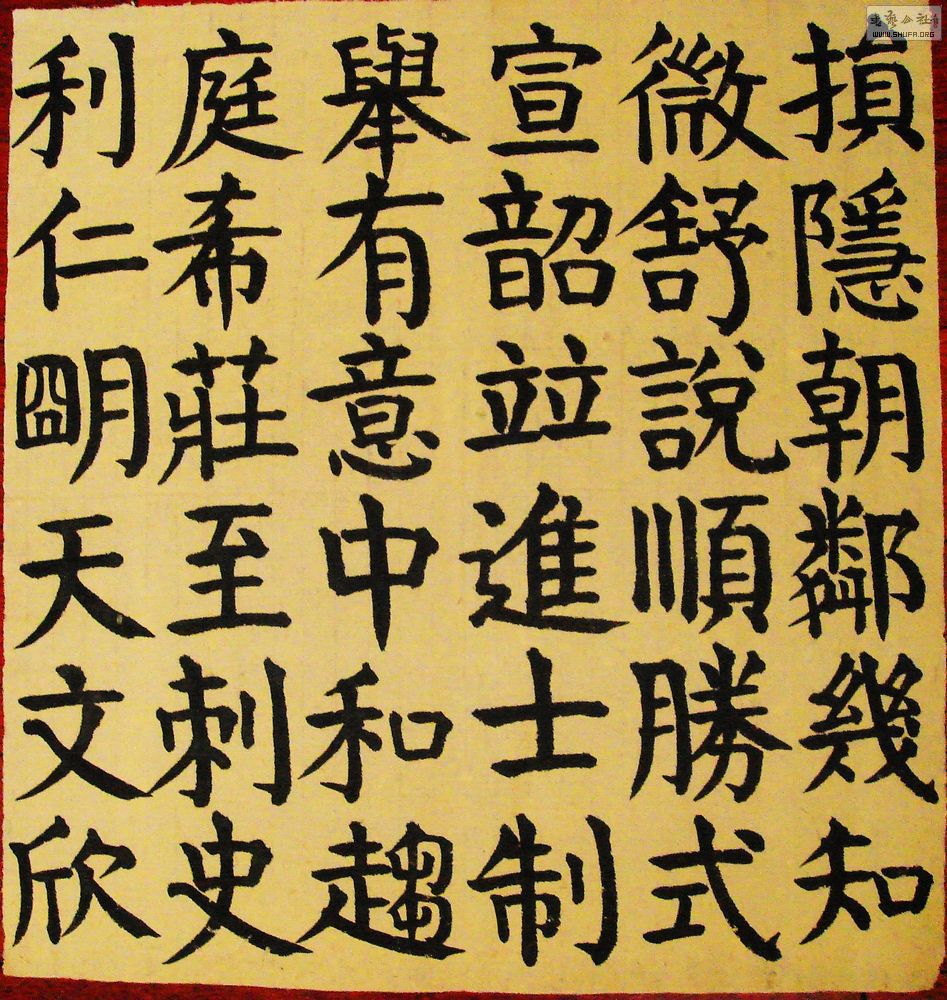 損隱朝鄰幾知
微舒說順勝式
宣韶竝進士制
舉有意中和趨
庭希莊至刺史
利仁朙天文欣
书艺公社
WWW.SHUFA.ORG